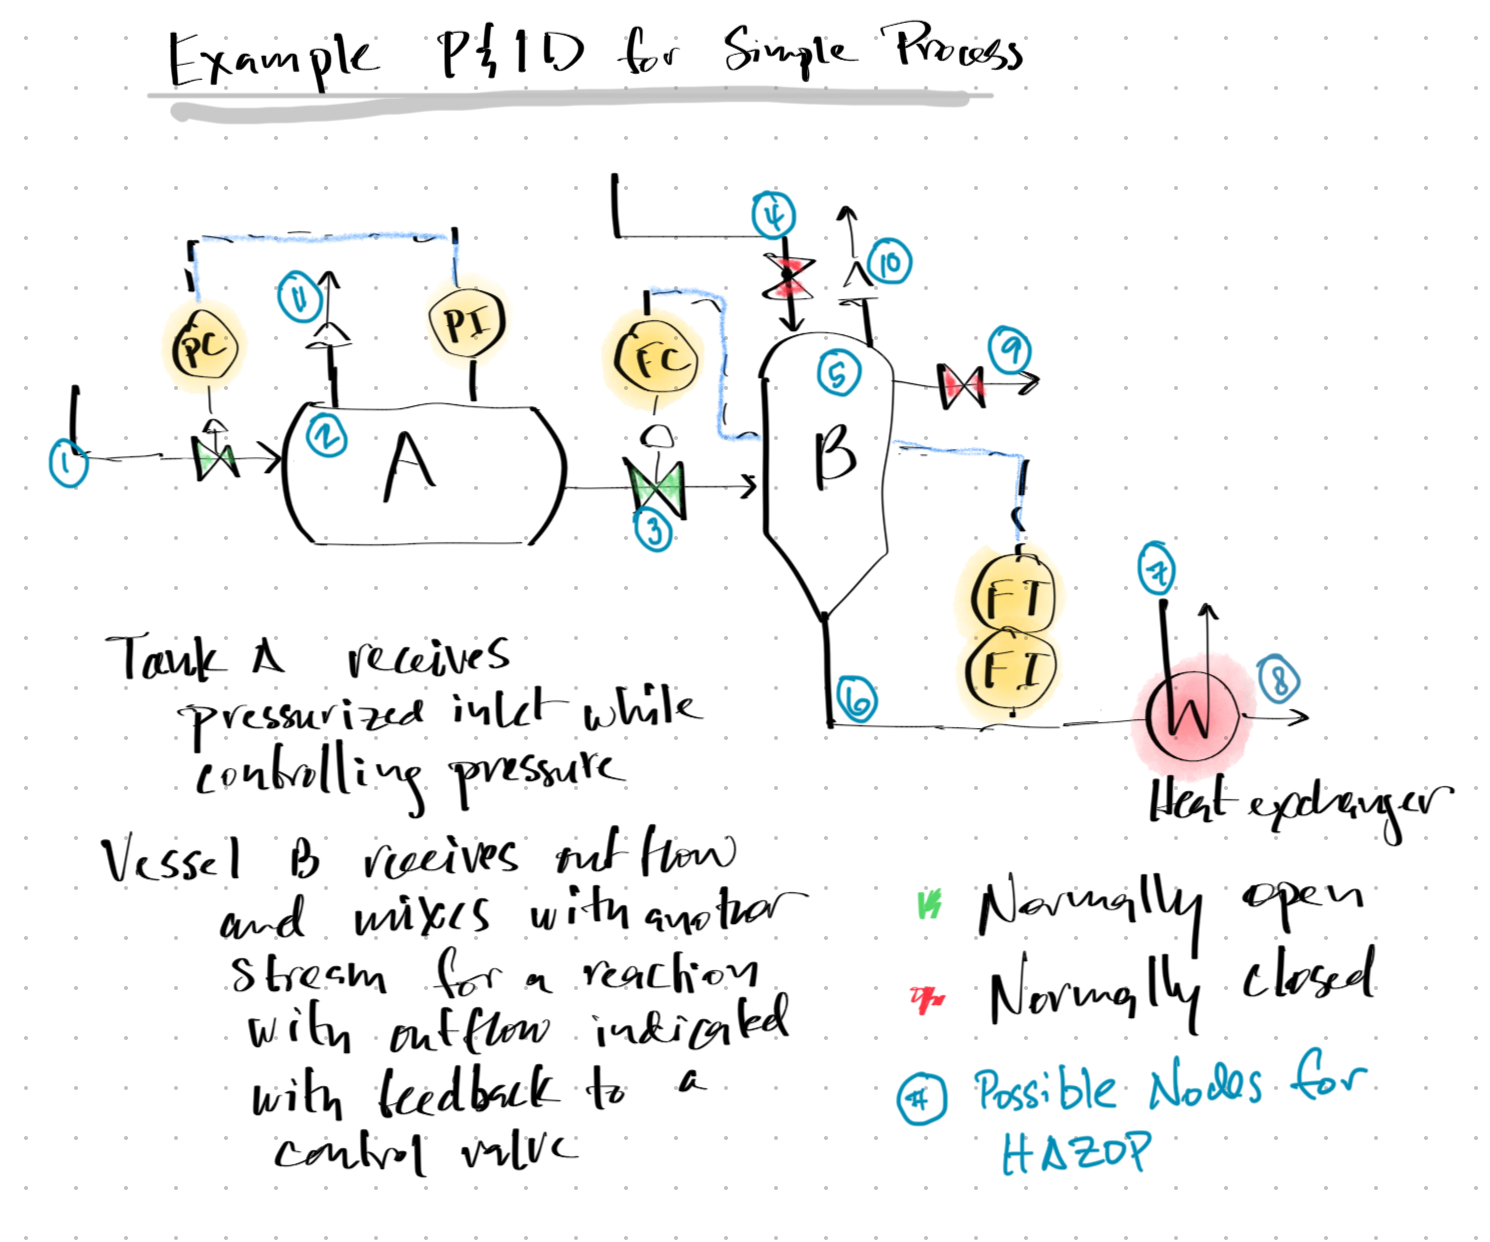 Example P&ID for Simple Process
4
10
11
PC
PI
FC
5
9
1
2
A
B
3
FT
7
FI
6
8
Heat exchanger
Tank A receives
pressurized inlet while
controlling pressure
Vessel B receives outflow
and mixes with another
stream for a reaction
with outflow indicated
with feedback to a
control valve
Normally open
Normally closed
# Possible Nodes for
HAZOP